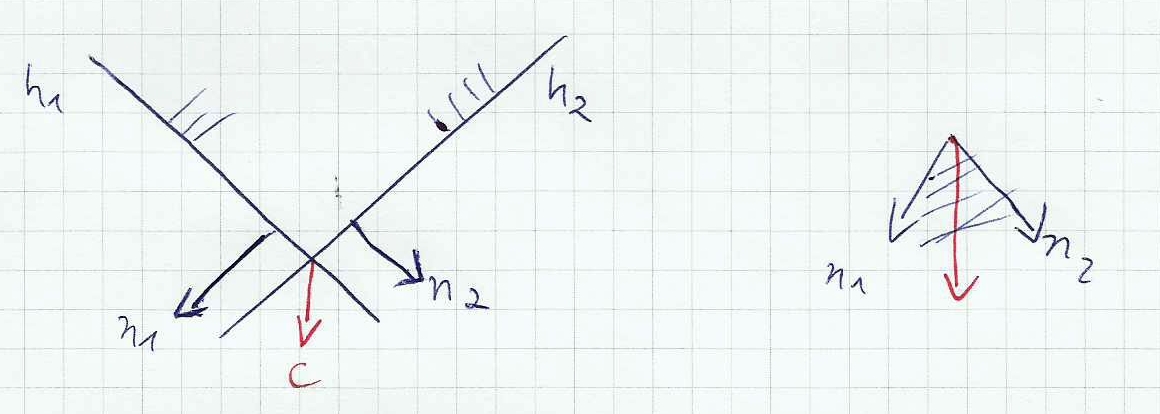 h₁
h₂
n₁
n₂
c
n₁
n₂